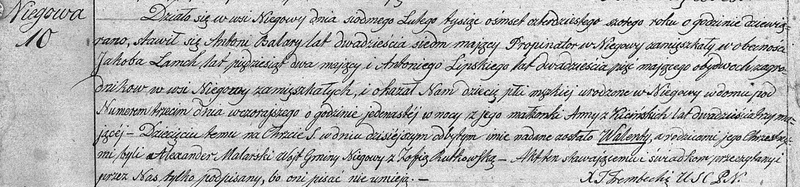 Niegowa
10
Działo się w wsi Niegowy dnia siodmego Lutego tysiąc ośmset czterdziestego szóstego roku o godzinie dziewią
rano, stawił się Antoni Balary lat dwadzieścia siedm mający Propinator w Niegowy zamieszkały w obecności
Jakoba Lamch, lat pięćdziesiąt dwa mający i Antoniego Lipskiego lat dwadzieścia pięć mającego obydwóch zagro-
dnikow w wsi Niegowy zamieszkałych, i okazał Nam dziecię płci męzkiej urodzone w Niegowy w domu pod
Numerem trzecim dnia wczorajszego o godzinie jedenastej w nocy z jego małżonki Anny z lat dwadzieścia trzy ma-
jącej – Dziecięciu temu na Chrzcie S. w dniu dzisiejszym odbytym imie nadane zostało Walenty, a rodzicami jego Chrzestne-
mi byli Alexander Malarski Wójt Gminy Niegowy z Zofią Rutkowską – Akt ten stawającemu i świadkom przeczytany i
przez Nas tylko podpisany, bo oni pisać nie umieją. –
X J Trembecki U S C P. N.